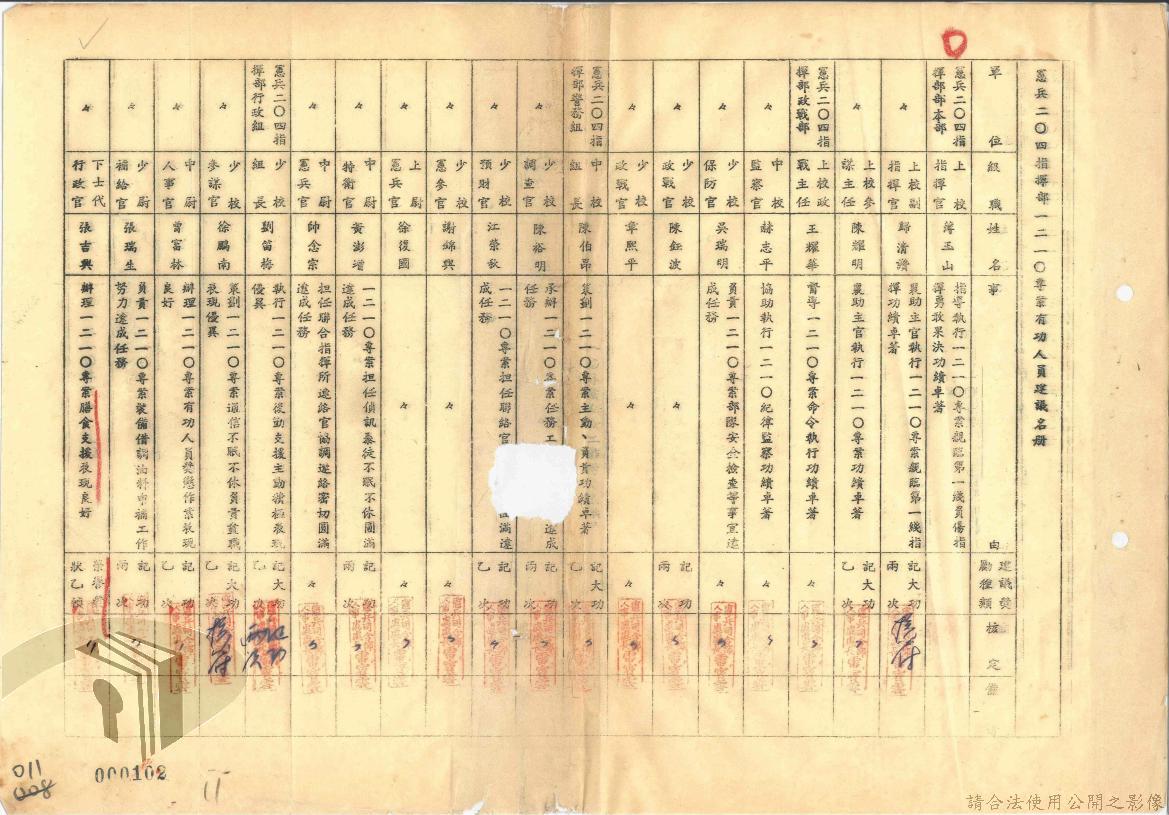 憲兵二〇四指揮部一二一〇專案有功人員建議名冊
單位
級職
姓名
事由
建議獎
勵種類
核定
備
憲兵二〇四指
揮部部本部
上校
指揮官
薄玉山
指導執行一二一〇專案親臨第一綫負傷指
揮勇敢果決功績卓著
〃
上校副
指揮官
歸清讚
襄助主官執行一二一〇專案親臨第一綫指
揮功績卓著
記大功
兩次
〃
上校參
謀主任
陳耀明
襄助主官執行一二一〇專案功績卓著
記大功
乙次
憲兵二〇四指
揮部政戰部
上校政
戰主任
王耀華
督導一二一〇專案命令執行功績卓著
〃
〃
中校
監察官
赫志平
協助執行一二一〇紀律監察功績卓著
〃
〃
少校
保防官
吳瑞明
負責一二一〇專案部隊安全檢查等事宜達
成任務
〃
〃
少校
政戰官
陳鈺波
〃
記功
兩次
〃
少校
政戰官
章熙平
〃
〃
憲兵二〇四指
揮部警務組
中校
組長
陳伯昂
策劃一二一〇專案主動、負責功績卓著
記大功
乙次
〃
少校
調查官
陳裕明
承辦一二一〇專案任務工
達成
任務
記功
兩次
〃
中校
預財官
江榮欽
一二一〇專案担任聯絡官
滿達
成任務
記功
乙次
〃
少校
憲參官
謝錦興
〃
〃
〃
上尉
憲兵官
徐復國
〃
〃
〃
中尉
特衛官
黃澎增
一二一〇專案担任偵訊暴徒不眠不休圓滿
達成任務
記功
兩次
〃
中尉
憲兵官
帥念宗
担任聯合指揮所連絡官協調連絡密切圓滿
達成任務
〃
憲兵二〇四指
揮部行政組
少校
組長
劉笛梅
執行一二一〇專案後勤支援主動積極表現
優異
記大功
乙次
記功
兩次
〃
少校
參謀官
徐鵬南
策劃一二一〇專案通信不眠不休負責盡職
表現優異
記大功
乙次
〃
中尉
人事官
曾富林
辦理一二一〇專案有功人員獎懲作業表現
良好
記功
乙次
〃
少尉
補給官
張瑞生
負責一二一〇專案裝備借調油料申補工作
努力達成任務
記功
兩次
〃
下士代
行政官
張吉興
辦理一二一〇專案膳食支援表現良好
榮譽獎
狀乙幀
011
008
000102
11
請合法使用公開之影像